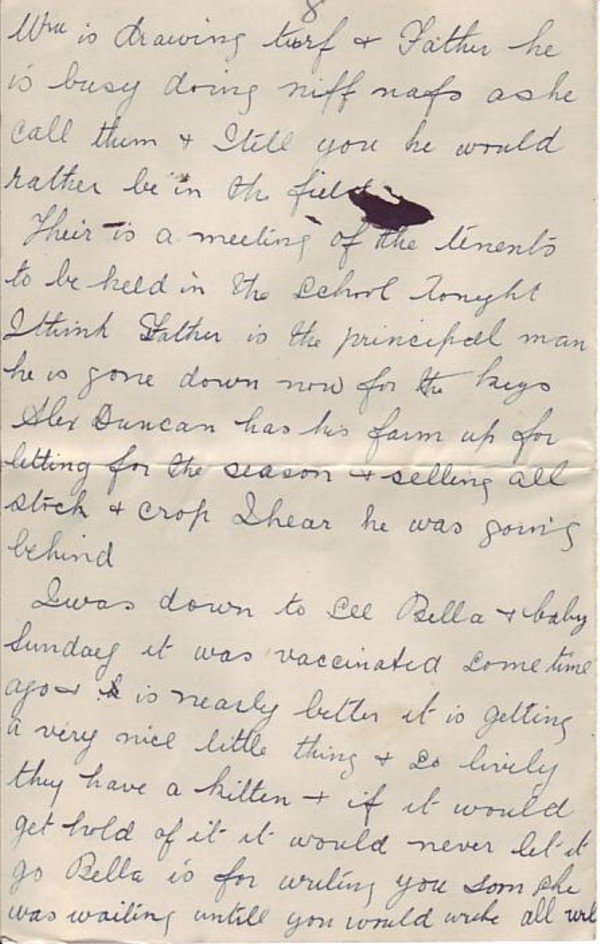 8
Wm is drawing turf & Father he
is busy doing niff nafs as he
call them & I tell you he would
rather be in the field
Their is a meeting of the tenents
to be held in the School tonight
I think Father is the principal man
he is gone down now for the keys
Alex Duncan has his farm up for
letting for the season & selling all
stock & crop I hear he was going
behind
I was down to see Bella & baby
Sunday it was vaccinated some time
ago & is nearly better it is getting
a very nice little thing & so lively
they have a kitten & if it would
get hold of it it would never let it
go Bella is for writing you som she
was waiting untill you would write all